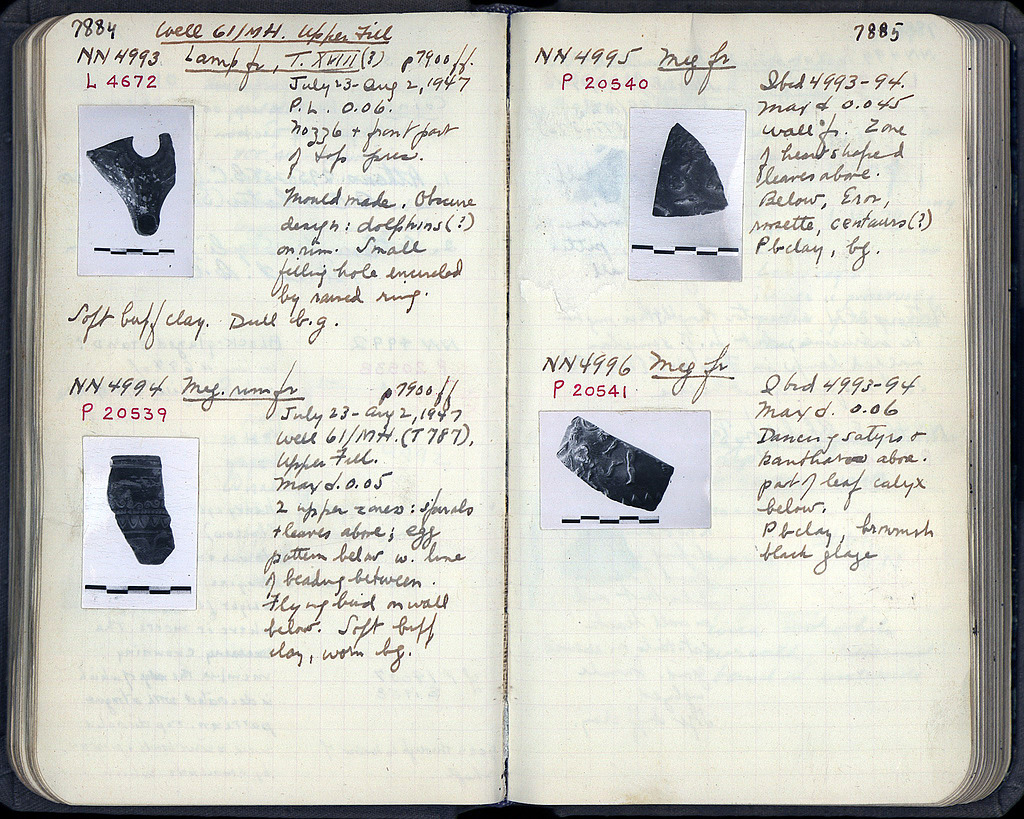 7884
Well 61/MH. Upper Fill
NN 4993 Lamp fr, T. XVIII(?) p7900ff.
L 4672
July 23-Aug 2, 1947
P.L. 0.06.
Nozzle + front part
of top pres.
Mould made. Obscure
design: dolphins(?)
on rim. Small
filling hole encircled
by raised ring.
Soft buff clay. Dull b.g.
NN 4994 Meg. rim fr p7900ff
P 20539
July 23-Aug 2, 1947
Well 61/MH. (T787),
Upper Fill.
Max d. 0.05
2 upper zones: spirals
+ leaves above; egg
pattern below w. line
of beading between.
Flying bird on wall
below. Soft buff
clay, worn bg.
7885
NN 4995 Meg fr
P 20540
Ibid 4993-94.
Max d 0.045
Wall fr. Zone
of heart shaped
leaves above.
Below, Eros,
rosette, centaurs(?)
Pbclay, bg.
NN4996 Meg fr
P 20541
Ibid 4993-94
Max d. 0.06
Dancing satyrs +
above.
part of leaf calyx
below.
Pbclay, brownish
black glaze